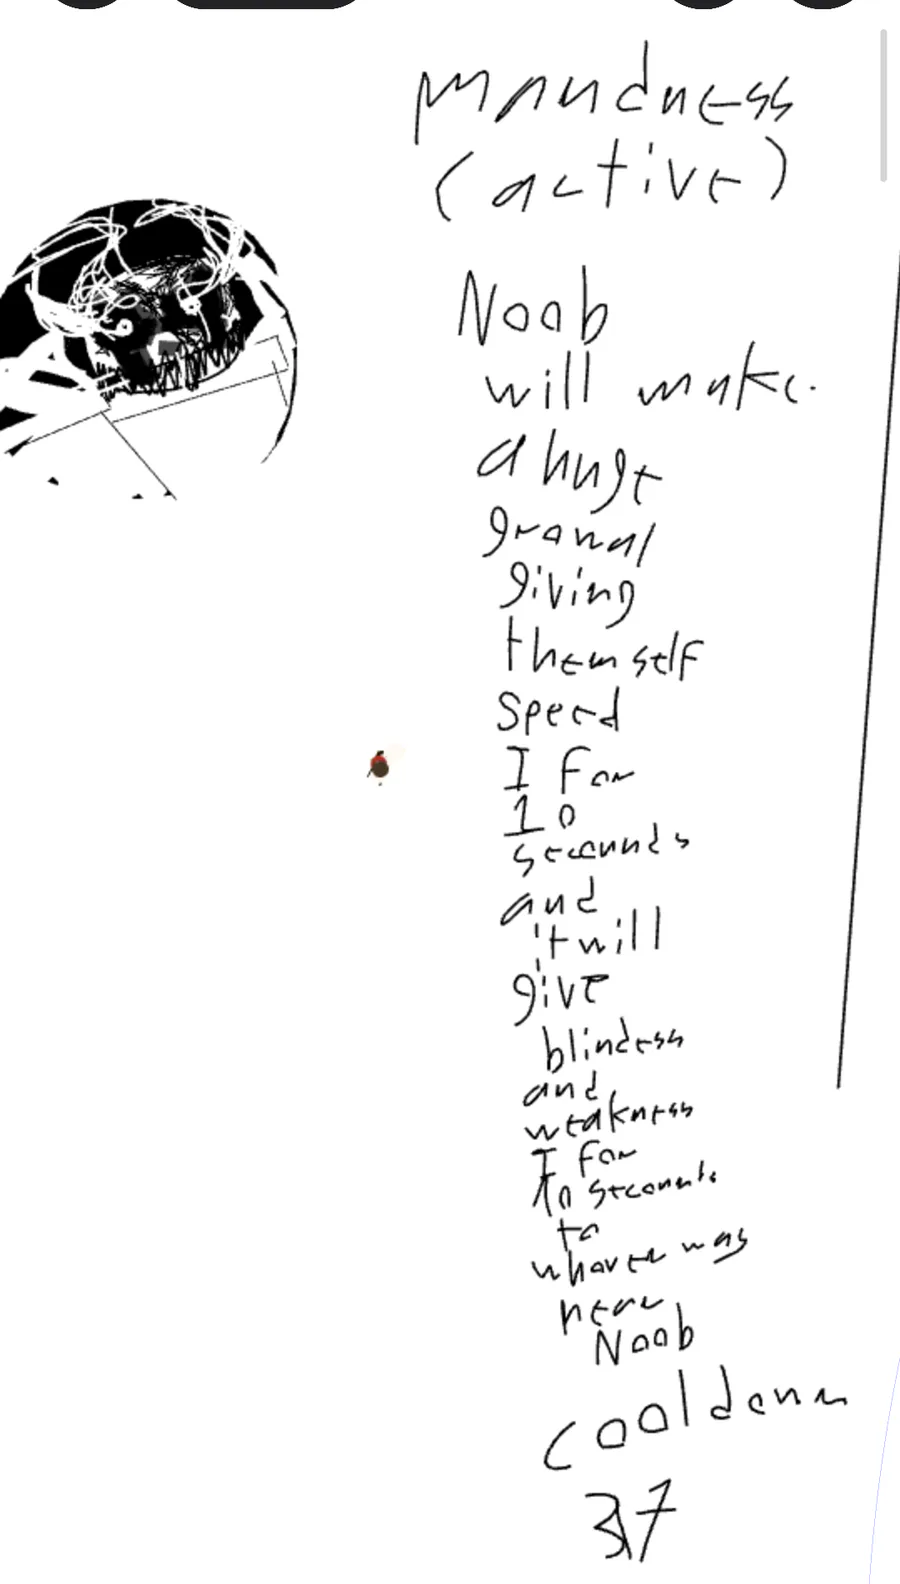 maudness
(active)
Noob
will make.
a huge
growal
giving
themself
speed
I For
10
seconnds
and
it will
give
blindess
and
weakness
I For
10 seconnds
to
whover was
near
Noob
cooldown
37